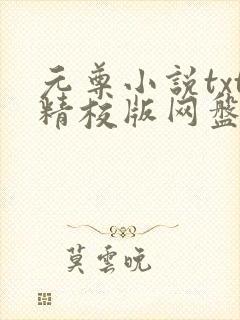 元尊小説txt
精校版网盘
莫雲晚